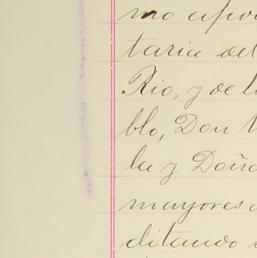 mo apo
taria del
Rio, y de l
blo, Don
la y Doña
mayores
ditando